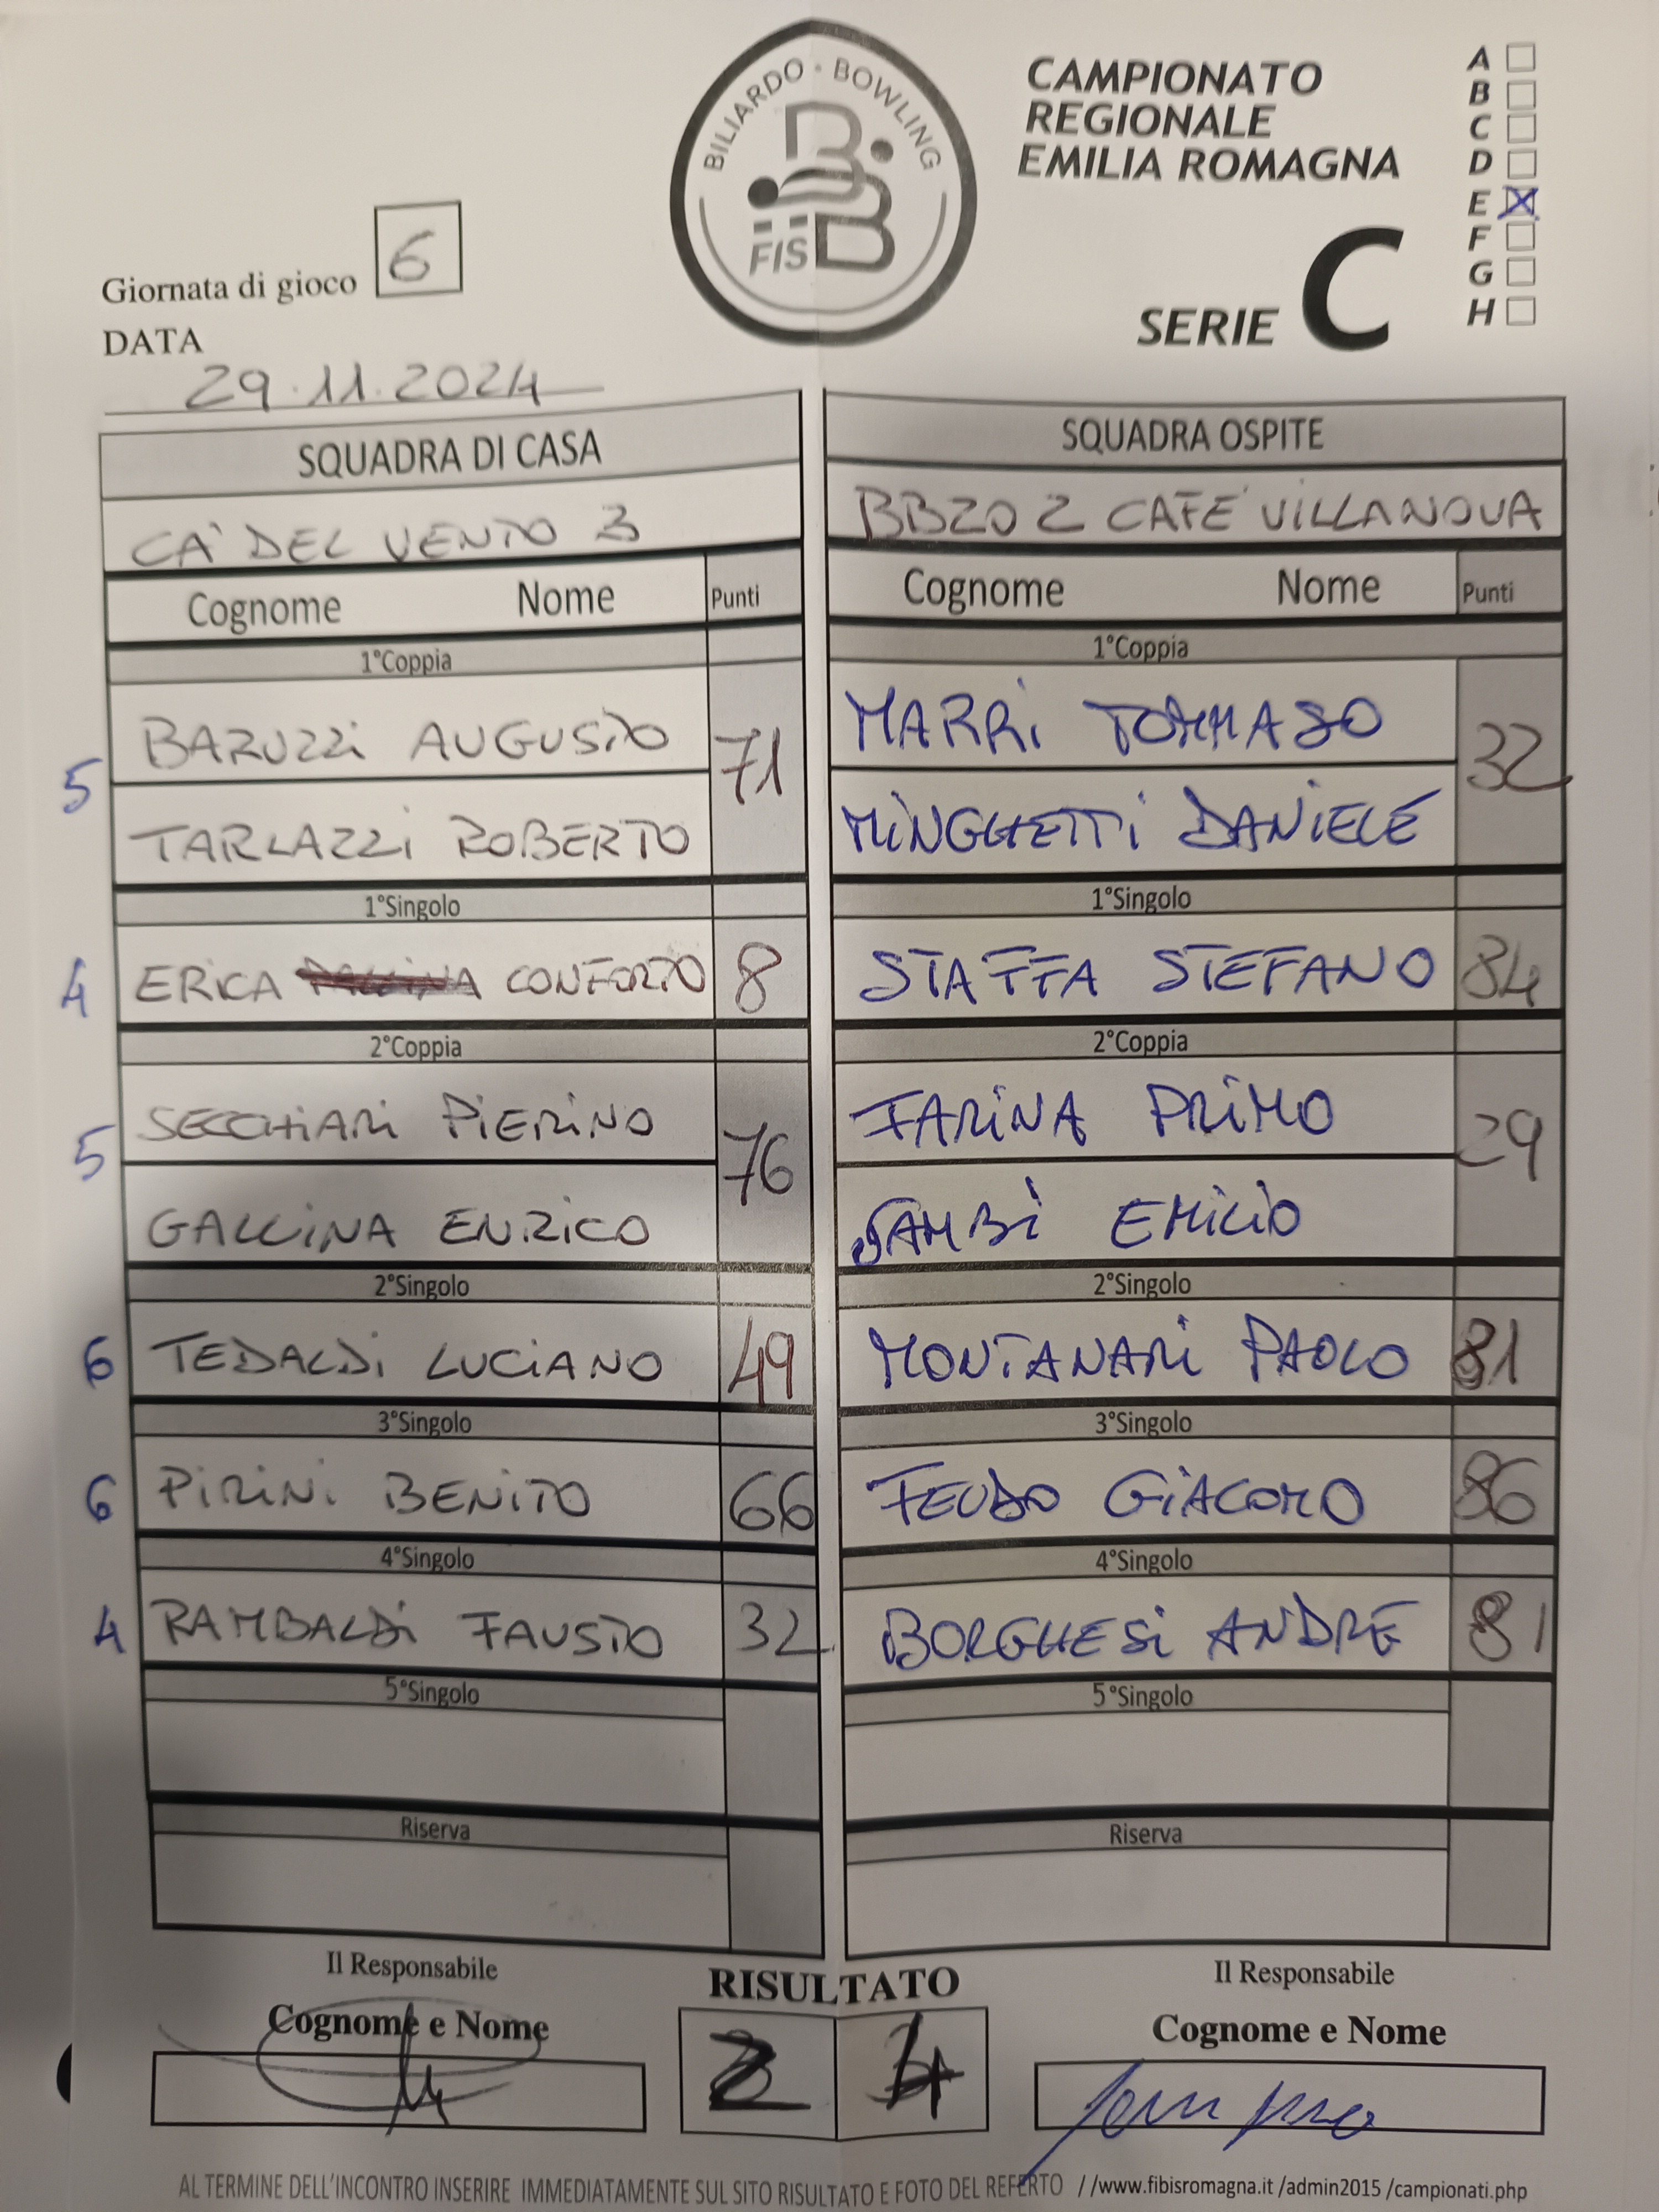 BILIARDO · BOWLING
FISBB
CAMPIONATO
REGIONALE
EMILIA ROMAGNA
SERIE C
A
B
C
D
E X
F
G
H
Giornata di gioco 6
DATA
29.11.2024
SQUADRA DI CASA
CA' DEL VENTO 3
Cognome Nome Punti
1°Coppia
BARUZZI AUGUSTO
5 71
TARLAZZI ROBERTO
1°Singolo
4 ERICA CONFORTO 8
2°Coppia
SECCHIARI PIERINO
5 76
GALLINA ENRICO
2°Singolo
6 TEDALDI LUCIANO 49
3°Singolo
6 PIRINI BENITO 66
4°Singolo
4 RAMBALDI FAUSTO 32
5°Singolo
Riserva
SQUADRA OSPITE
BB20 2 CAFE' VILLANOVA
Cognome Nome Punti
1°Coppia
MARRI TOMMASO
32
MINGHETTI DANIELE
1°Singolo
STAFFA STEFANO 84
2°Coppia
FARINA PRIMO
29
SAMBI EMILIO
2°Singolo
MONTANARI PAOLO 81
3°Singolo
FEUDO GIACOMO 86
4°Singolo
BORGHESI ANDRE 81
5°Singolo
Riserva
Il Responsabile
Cognome e Nome
RISULTATO
2 4
Il Responsabile
Cognome e Nome
AL TERMINE DELL'INCONTRO INSERIRE IMMEDIATAMENTE SUL SITO RISULTATO E FOTO DEL REFERTO //www.fibisromagna.it /admin2015 /campionati.php